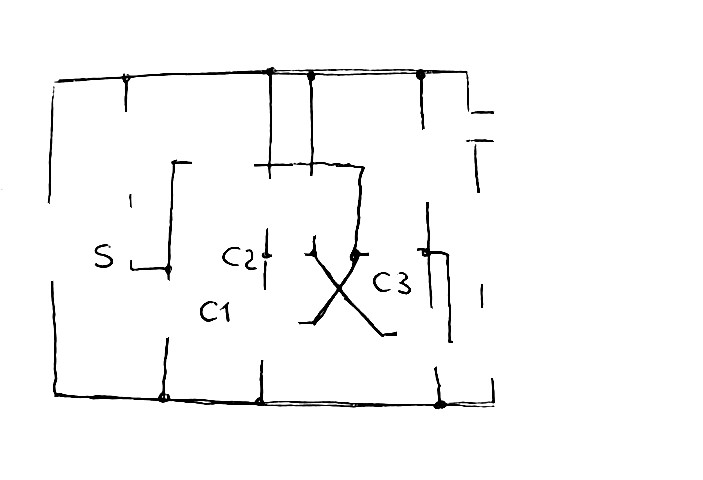 S
C2
C3
C1